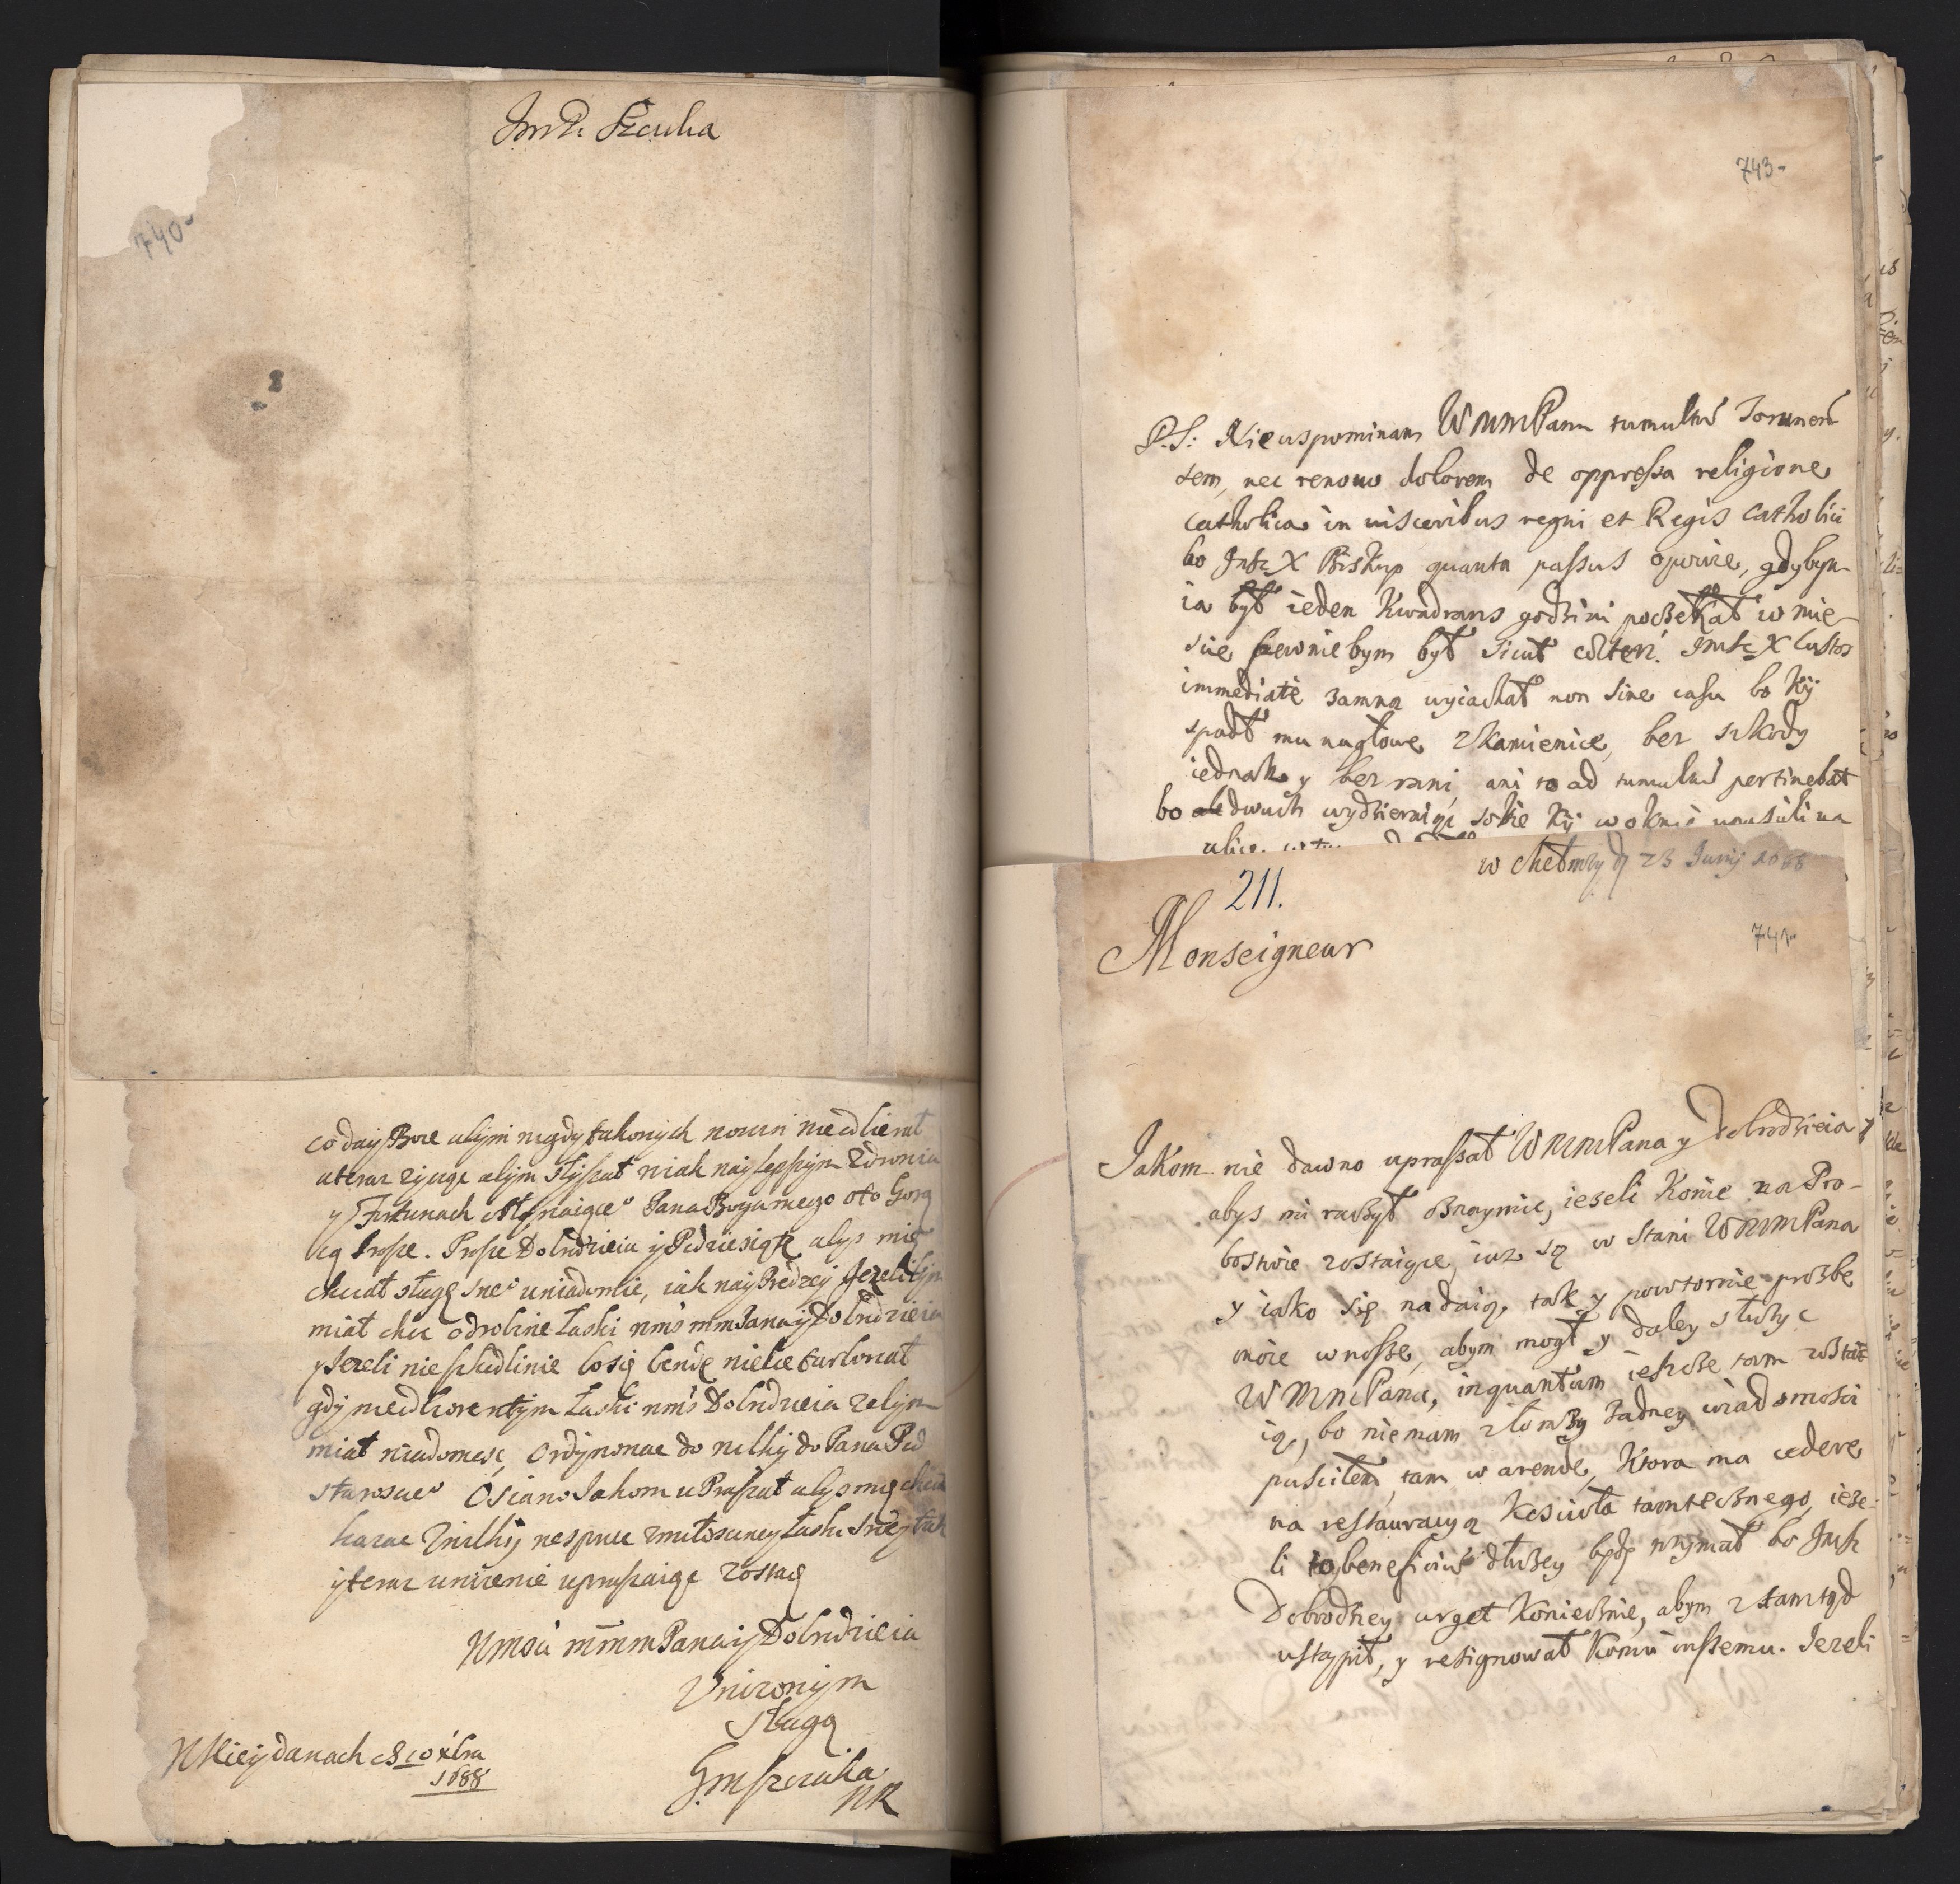 JmP. Szczuka
740
co day Boze abym nigdy takowych nowin nieodbierał
a teraz zyiąc abym słyszał w iak naylepszym Zdrowiu
y Fortunach
Pana Boga mego oto Gorą
cą prosze. Prosze Dobrodzieia y Pediesiątę abys mię
chciał sługę swe° uwiadomic, iak nayPredzey Jezelibym
miał chec odrobine Łaski wms mmPana y Dobrodzieia
y Jezeli nie
bo się bende
turbował
gdy
Łaski wms Dobrodzieia
miał wiadomosc, Ordynowac do
do Pana Pod
starosce°
Jakom uPraszał abys mię chciał
kazac
łaski swey tak
y teraz unizenie upraszaiąc Zostaę
Wmsci mmmPana y Dobrodzieia
Vnizonym
sługą
G. m Szczuka
WK
W Kieydanach d 8 10 xbra
1688
743
P.S. Nie wspominam WMMPanu tumultus Torunen
sem, nec renovo dolorem de oppressa religione
catholica in visceribus regni et Regis Catholici
bo Jmśc X Biskup quanta passus opisze, gdybym
ia był ieden Kwadrans godzini poczekał w mie-
scie pewnie bym był sicut cæteri. Jmśc X Custos
immediatè zamną wyiachał non sine casu bo Kÿ
spadł mu nagłowe z Kamienice, bez szkody
iednak y bez rani, ani to ad tumultus pertinebat
bo dwuch wydzieraiąc sobie Kÿ w oknie upuscili na
ulice
w Chełmzy d 23 Junij 1688
211.
741
Monseigneur
Jakom nie dawno upraszał WMMPana y Dobrodzieia
abys mi raczył oznaymic, iezeli Konie na Pro-
bostwie zostaiące iuz są w Stani WMMPana
y iako się nadaią, tak y powtornie prozbe
moie wnosze, abym mogł y daley słuzyc
WMMPana, inquantum ieszcze tam zosta
ią, bo nie mam z Łomzy zadney wiadomosci
pusciłem tam w arende, Ktora ma cedere
na restauracyą Koscioła tamtecznego, ieze-
li to beneficium dłuzey będę trzymał bo Jmsc
Dobrodziey urget Koniecznie, abym z tamtąd
ustąpił, y resignował Komu inszemu. Jezeli